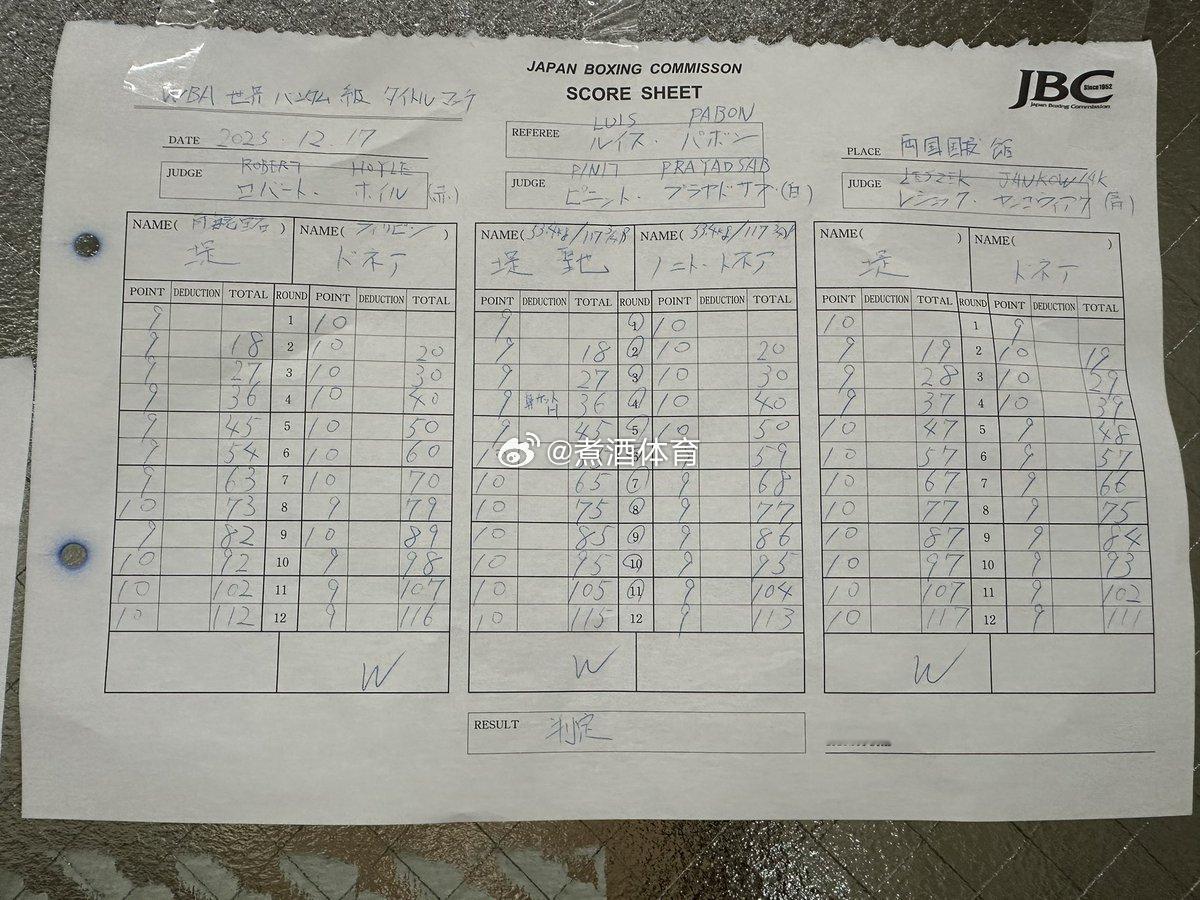 JAPAN BOXING COMMISSON
SCORE SHEET
JBC Since 1952
Japan Boxing Commission
WBA 世界 バンタム 級 タイトルマッチ
DATE 2025.12.17
REFEREE LUIS PABON
ルイス・パボン
PLACE 両国国技館
JUDGE ROBERT HOYLE
ロバート・ホイル (赤)
JUDGE PINIT PRAYADSAB
ピニット・プラヤドサブ (白)
JUDGE LESZEK JANKOWIAK
レシェック・ヤンコヴィアク (青)
NAME( 角海老宝石 ) NAME( フィリピン ) NAME( 53.4kg/117 ¾P NAME( 53.4kg/117 ¾P NAME( ) NAME( )
堤 ドネア 堤 聖也 ノニト・ドネア 堤 ドネア
POINT DEDUCTION TOTAL ROUND POINT DEDUCTION TOTAL POINT DEDUCTION TOTAL ROUND POINT DEDUCTION TOTAL POINT DEDUCTION TOTAL ROUND POINT DEDUCTION TOTAL
9 1 10 9 1 10 10 1 9
9 18 2 10 20 9 18 2 10 20 9 19 2 10 19
9 27 3 10 30 9 27 3 10 30 9 28 3 10 29
9 36 4 10 40 9 36 4 10 40 9 37 4 10 39
9 45 5 10 50 9 45 5 10 50 10 47 5 9 48
9 54 6 10 60 59 10 57 6 9 57
9 63 7 10 70 10 65 7 9 68 10 67 7 9 66
10 73 8 9 79 10 75 8 9 77 10 77 8 9 75
9 82 9 10 89 10 85 9 9 86 10 87 9 9 84
10 92 10 9 98 10 95 10 9 95 10 97 10 9 93
10 102 11 9 107 10 105 11 9 104 10 107 11 9 102
10 112 12 9 116 10 115 12 9 113 10 117 12 9 111
W W W
RESULT 判定
@煮酒体育